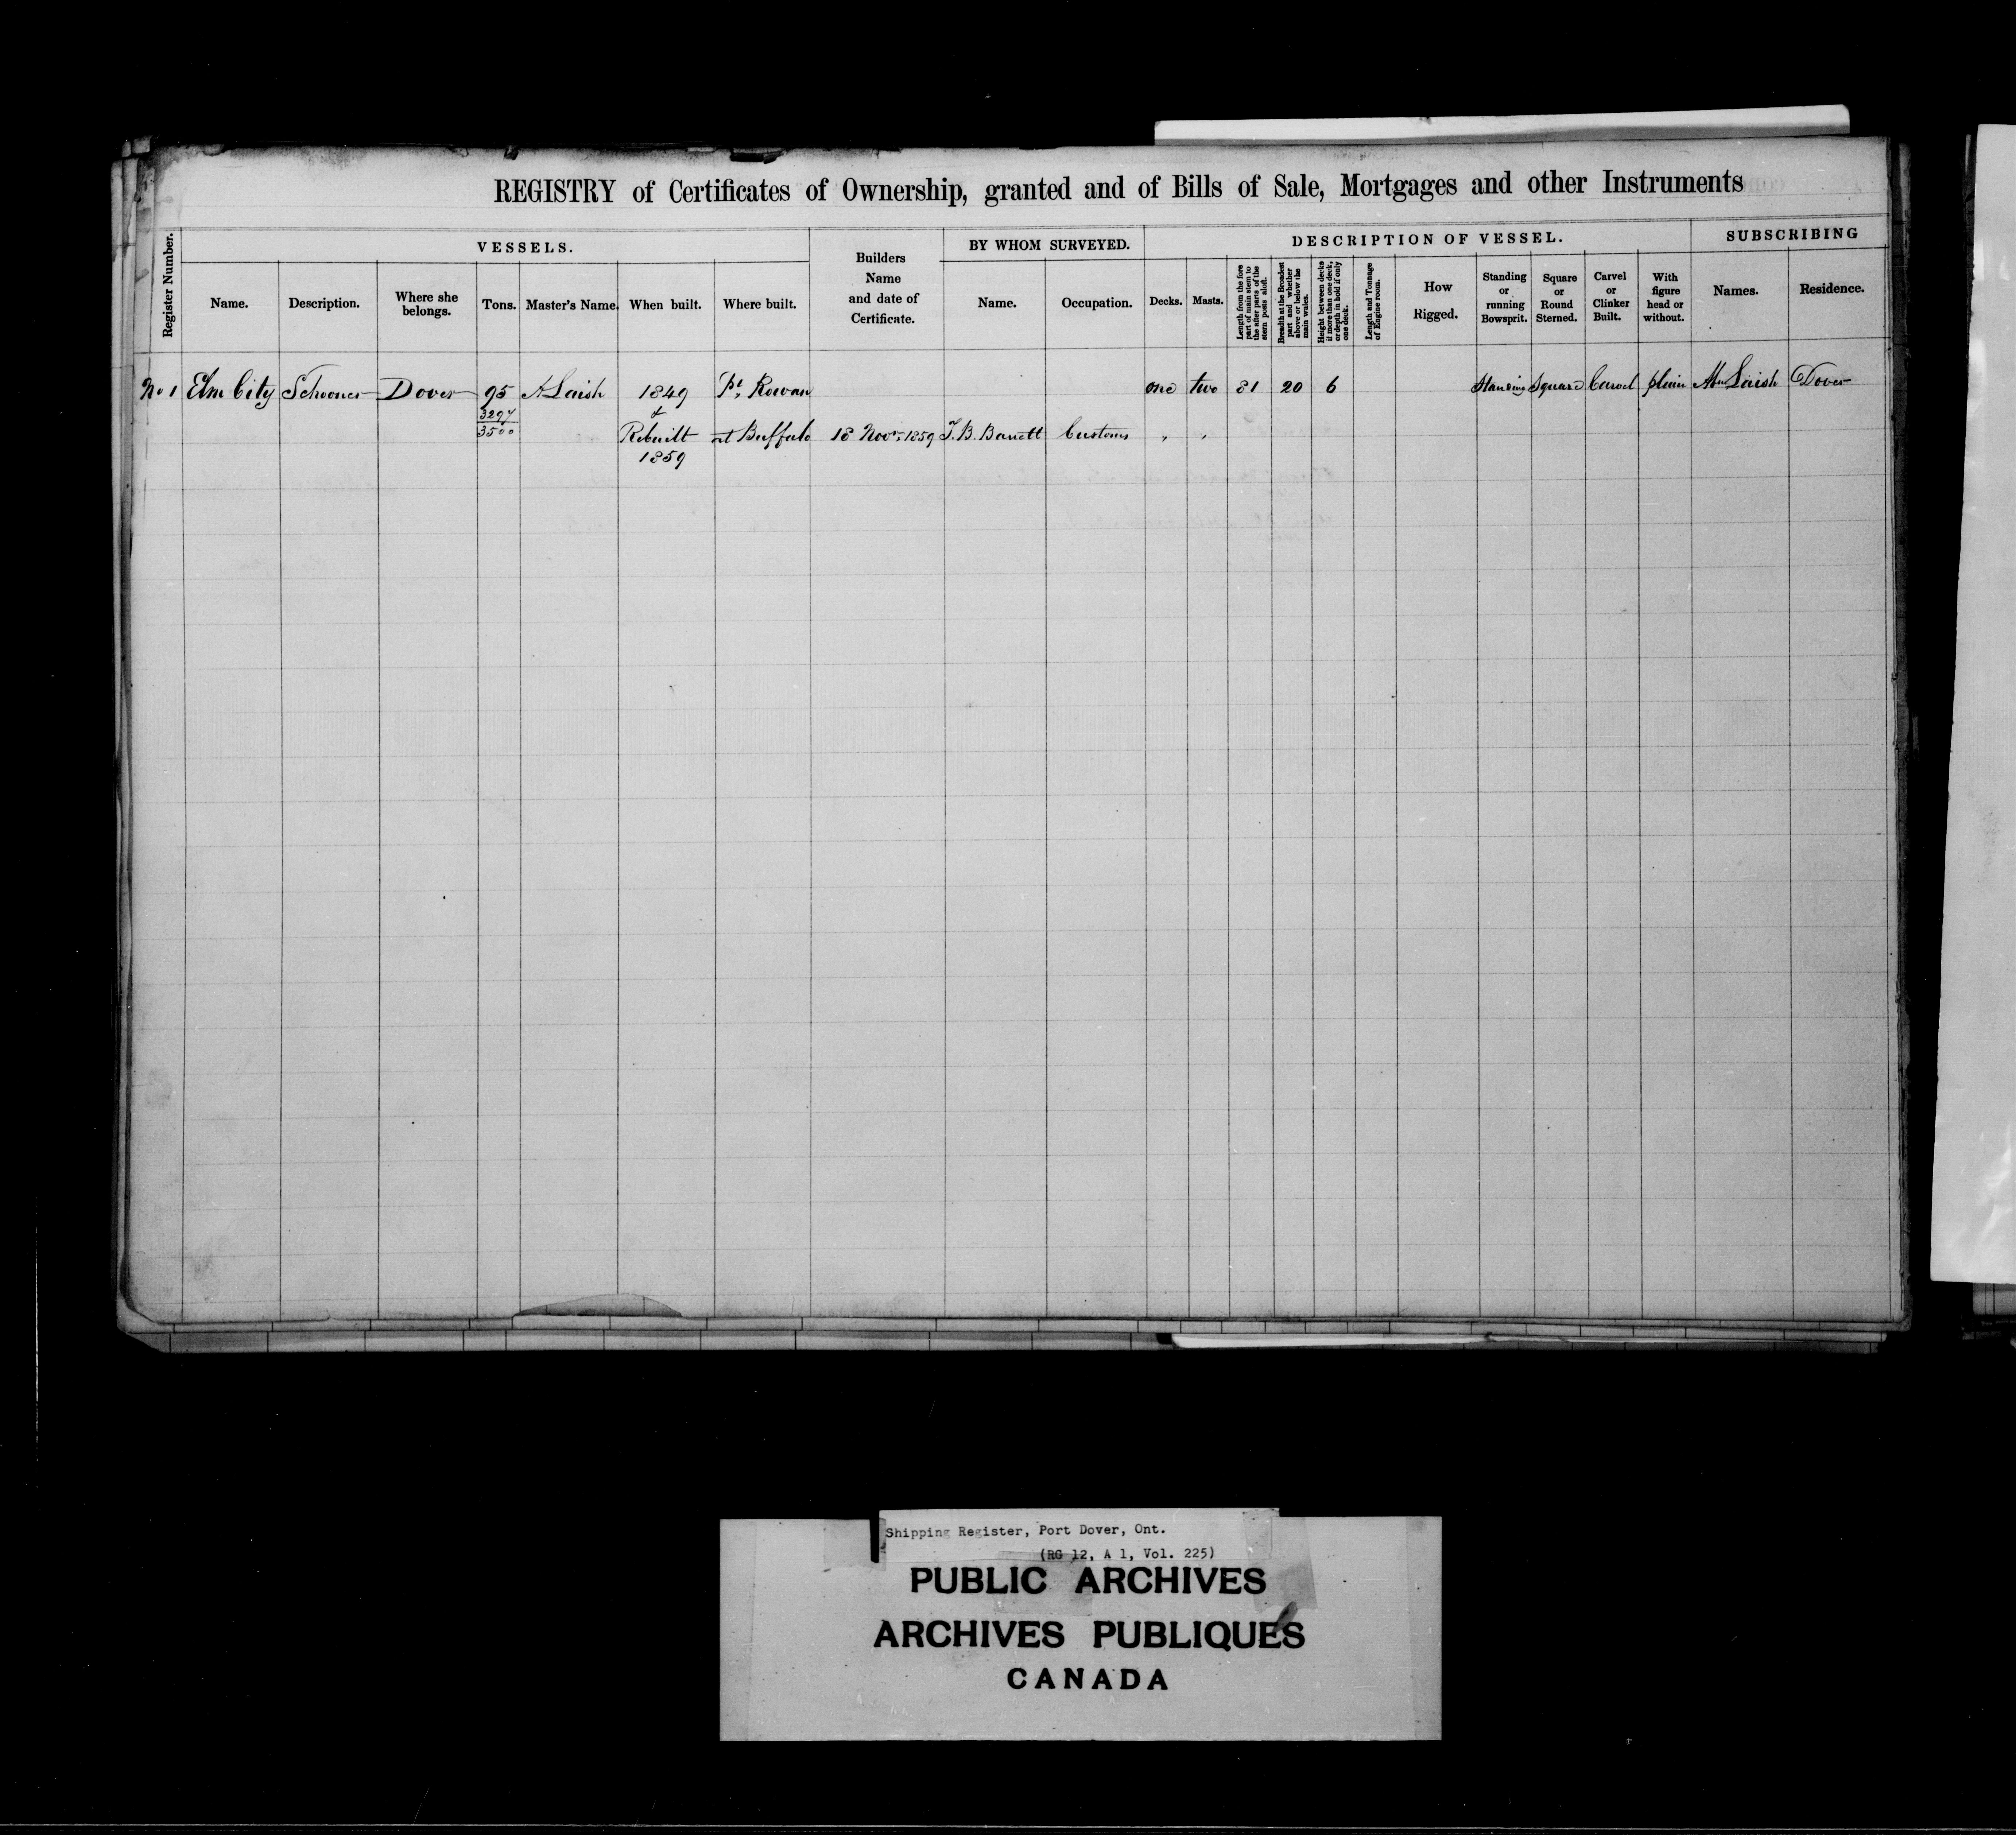 REGISTRY of Certificates of Ownership, granted and of Bills of Sale, Mortgages and other Instruments
Register Number.
VESSELS.
Name.
Description.
Where she belongs.
Tons.
Master's Name.
When built.
Where built.
Builders
Name
and date of
Certificate.
BY WHOM SURVEYED.
Name.
Occupation.
DESCRIPTION OF VESSEL.
Decks.
Masts.
Length from the fore part of main stem to the after parts of the stern posts aloft.
Breadth at the Broadest part and whether above or below the main wales.
Height between decks if more than one deck, or depth in hold if only one deck.
Length and Tonnage of Engine room.
How
Rigged.
Standing
or
running
Bowsprit.
Square
or
Round
Sterned.
Carvel
or
Clinker
Built.
With
figure
head or
without.
SUBSCRIBING
Names.
Residence.
No 1 Elm City Schooner Dover 95 A Laish 1849 Pt Rowan one two 81 20 6 Standing Square Carvel plain Laish Dover
3297
3500
& Rebuilt at Buffalo 18 Novr 1859 T. B. Barrett Customs " "
1859
Shipping Register, Port Dover, Ont.
(RG 12, A 1, Vol. 225)
PUBLIC ARCHIVES
ARCHIVES PUBLIQUES
CANADA